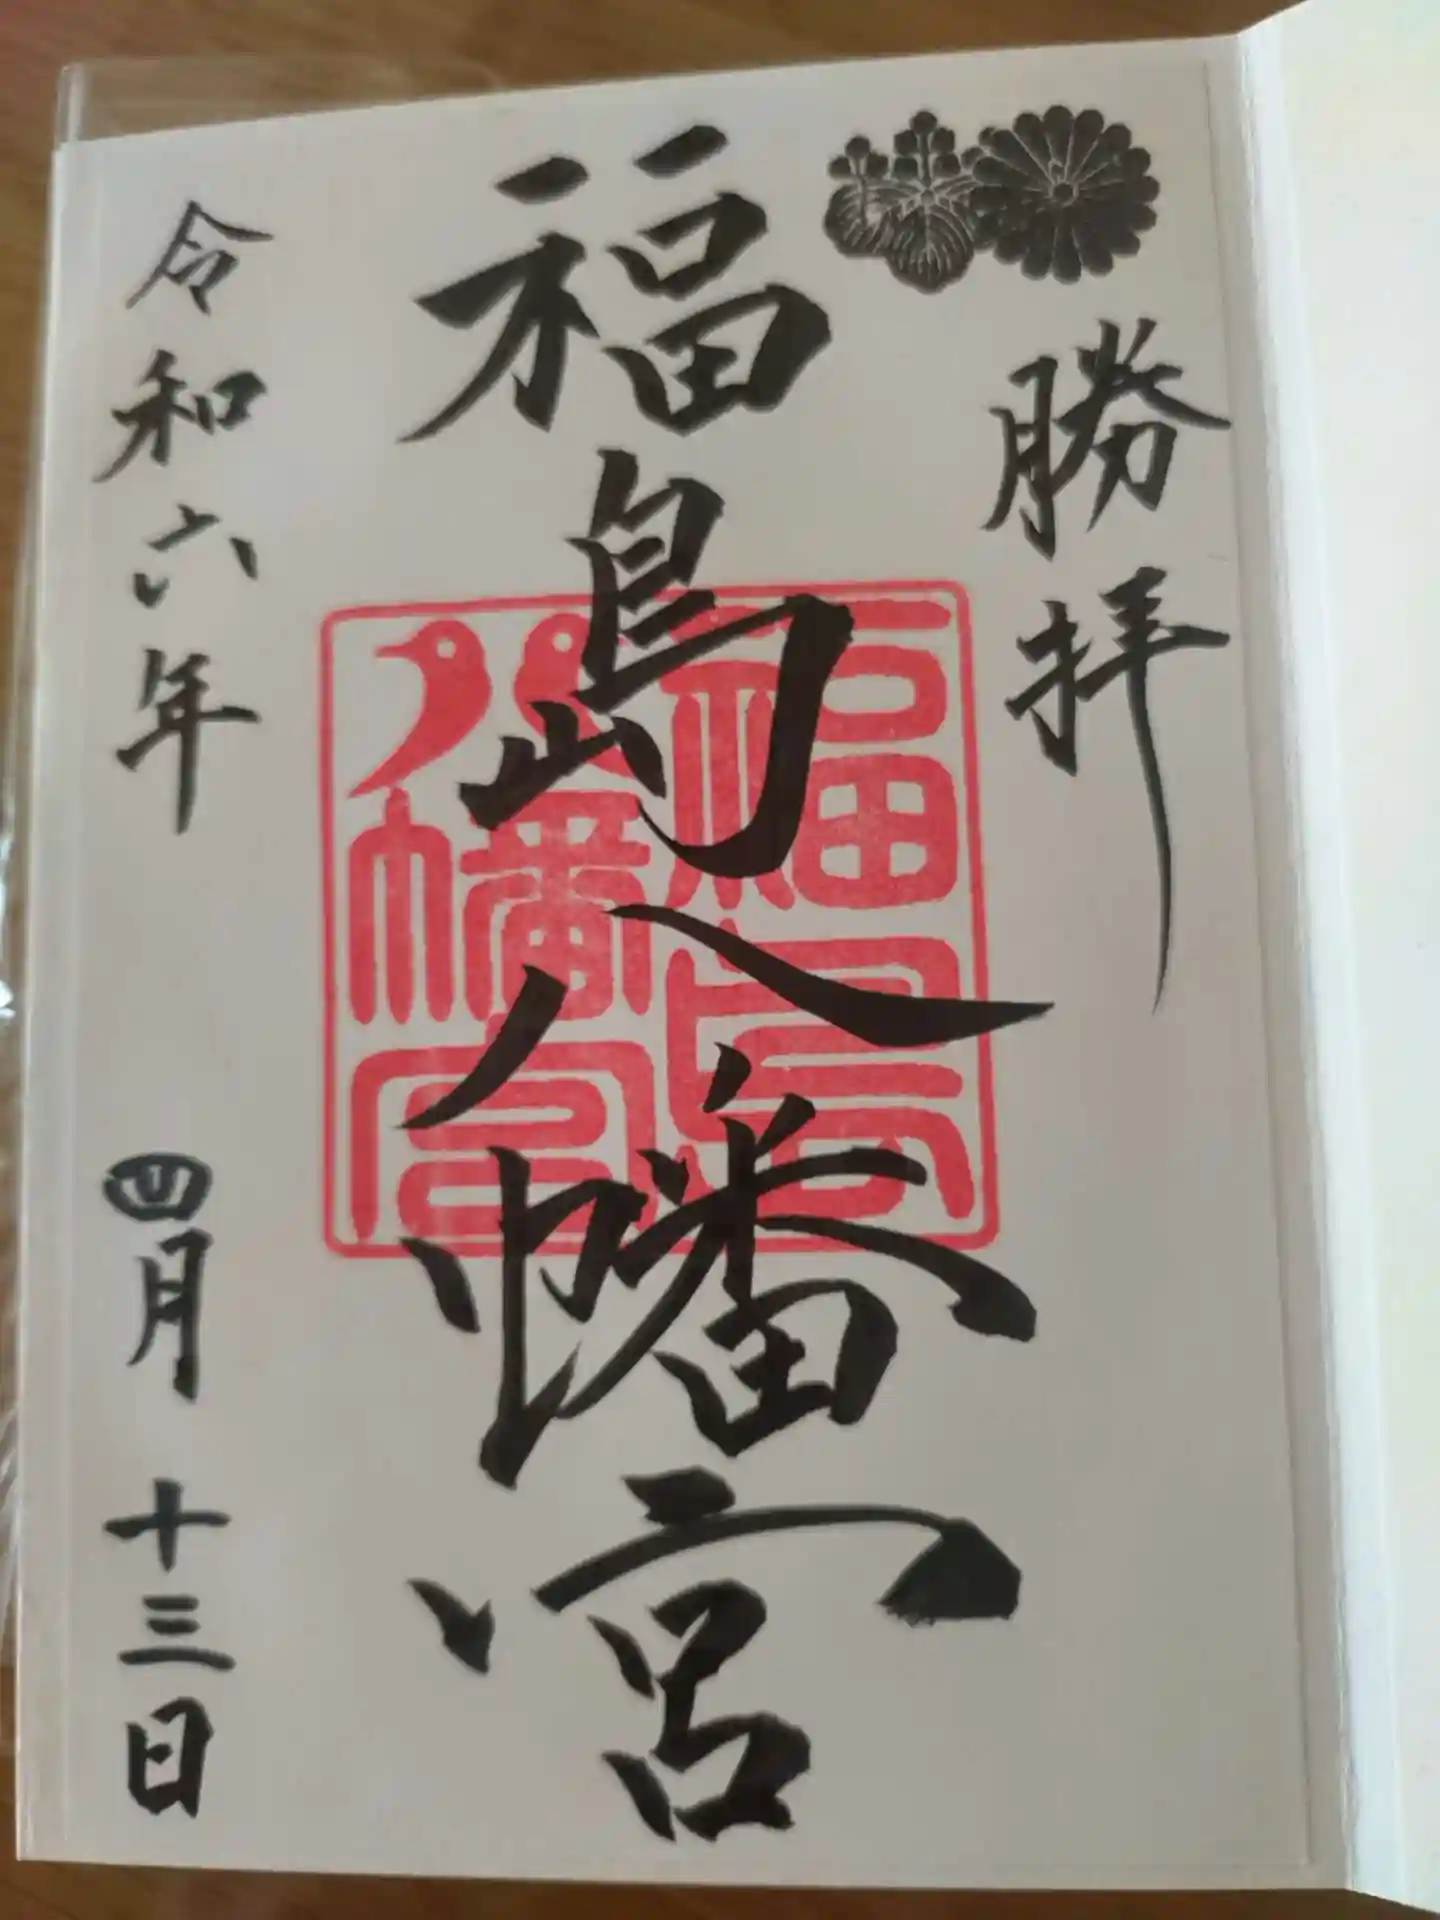 勝拝
福嶋八幡宮
福島
八幡宮
令和六年 四月 十三日